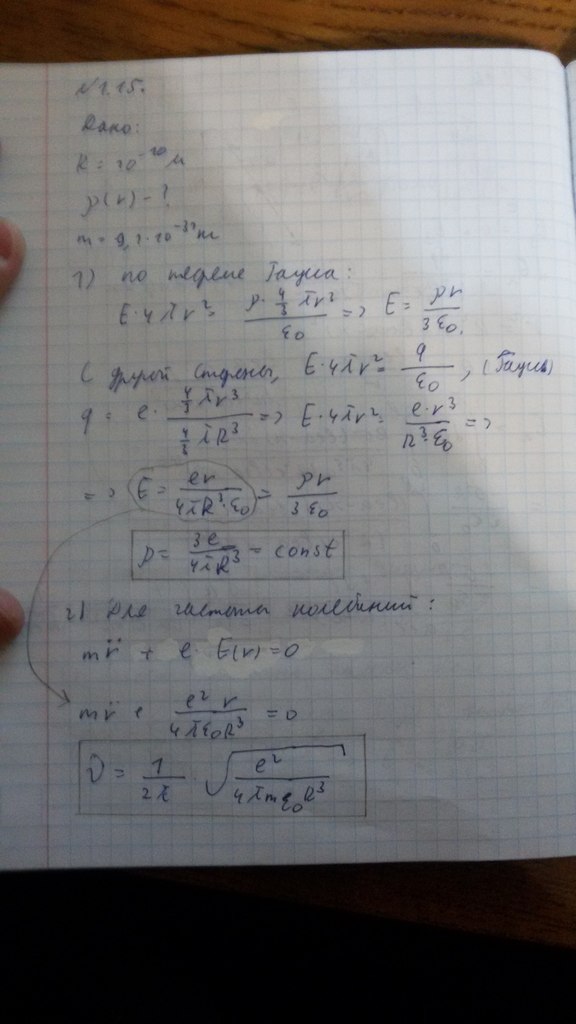 №1.15.
Дано:
R = 10⁻¹⁰ м
ρ(r) - ?
m = 9,1·10⁻³¹ кг
1) по теореме Гаусса:
E·4πr² = (ρ·4/3 πr³)/ε₀ => E = ρr/3ε₀.
С другой стороны, E·4πr² = q/ε₀, (Гаусс)
q = e·(4/3 πr³)/(4/3 πR³) => E·4πr² = e·r³/R³·ε₀ =>
=> E = er/4πR³·ε₀ = ρr/3ε₀
ρ = 3e/4πR³ = const
2) Для частоты колебаний:
mr̈ + e·E(r) = 0
mr̈ + e²r/4πε₀R³ = 0
ν = 1/2π · √(e²/4πmε₀R³)